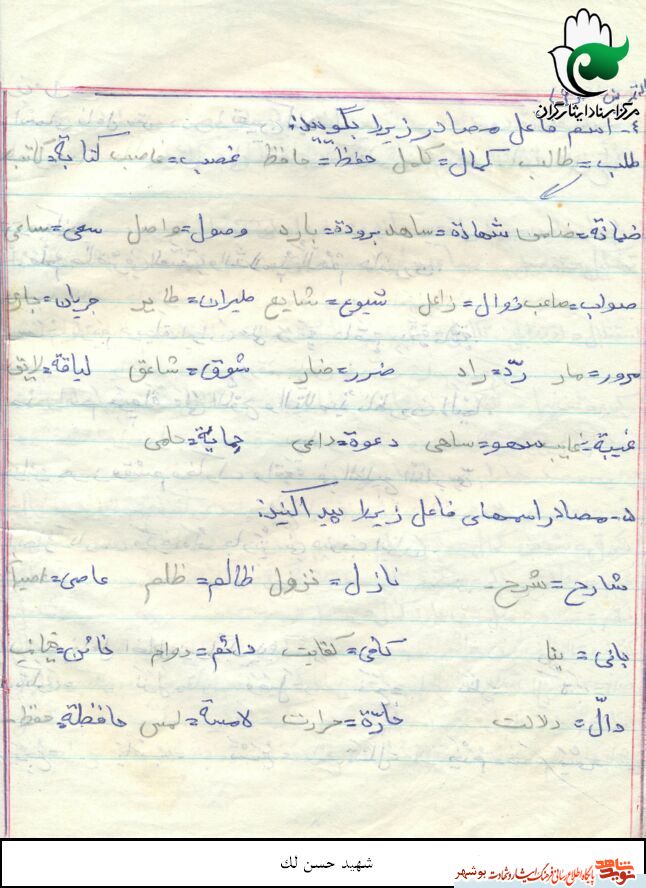 مرکز اسناد ایثارگران
٤- اسم فاعل مصادر زیر را بگویید:
طلب = طالب کمال = کامل حفظ = حافظ غصب = غاصب کتابة = کاتب
ضمانة = ضامن شهادة = ساهد برودة = بارد وصول = واصل سعی = ساعی
صواب = صاعب زوال = زاعل شیوع = شایع طیران = طایر جریان = جاری
مرور = مار ردّ = راد ضرر = ضار شوق = شاعق لیاقة = لایق
غیبة = غایب سهو = ساهی دعوة = داعی حمایة = حامی
٥- مصادر اسمهای فاعل زیر را پیدا کنید:
شارح = شرح نازل = نزول ظالم = ظلم عاصی =
بانی = بنا کافی = کفایت دائم = دوام خائن = خیانت
دالّ = دلالت حارّة = حرارت لامسة = لمس حافظة = حفظ
شهید حسن لك
نوید شاهد
پایگاه اطلاع رسانی فرهنگ ایثار و شهادت بوشهر